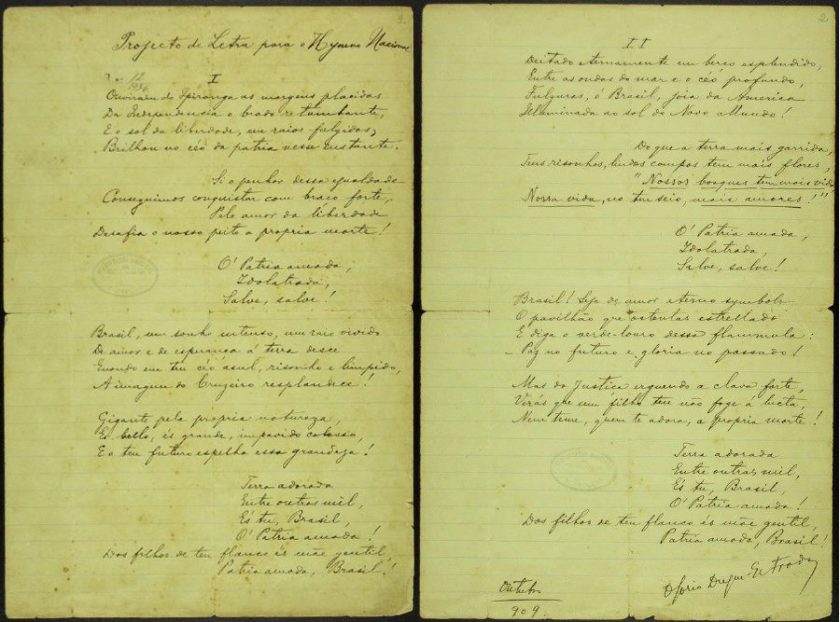 Projecto de Letra para o Hymno Nacional
I
Ouviram do Ypiranga as margens placidas
Da Independencia o brado retumbante,
E o sol da liberdade, em raios fulgidos,
Brilhou no céo da patria nesse instante.
Si o penhor dessa egualdade
Conseguimos conquistar com braço forte,
Pelo amor da liberdade
Desafia o nosso peito a propria morte!
O' Patria amada,
Idolatrada,
Salve, salve!
Brasil, um sonho intenso, um raio vivido
De amor e de esperança á terra desce
Quando em teu céo azul, risonho e limpido,
A imagem do Cruzeiro resplandece!
Gigante pela propria natureza,
És bello, és grande, impavido colosso,
E o teu futuro espelha essa grandeza!
Terra adorada
Entre outras mil,
És tu, Brasil,
O' Patria amada!
Dos filhos de teu flanco és mãe gentil,
Patria amada, Brasil!
2
II
Deitado eternamente em berço esplendido,
Entre as ondas do mar e o céo profundo,
Fulguras, ó Brasil, joia da America
Illuminada ao sol do Novo Mundo!
Do que a terra mais garrida
Teus risonhos, lindos campos tem mais flores,
"Nossos bosques tem mais vida
Nossa vida, no teu seio, mais amores!"
O' Patria amada,
Idolatrada,
Salve, salve!
Brasil! Seja de amor eterno symbolo
O pavilhão que ostentas estrellado
E diga o verde-louro dessa flammula:
– Paz no futuro e gloria no passado!
Mas da Justiça erguendo a clava forte,
Verás que um filho teu não foge á lucta,
Nem teme, quem te adora, a propria morte!
Terra adorada
Entre outras mil,
És tu, Brasil,
O' Patria amada!
Dos filhos de teu flanco és mãe gentil,
Patria amada, Brasil!
Osorio Duque Estrada
Outubro
909.